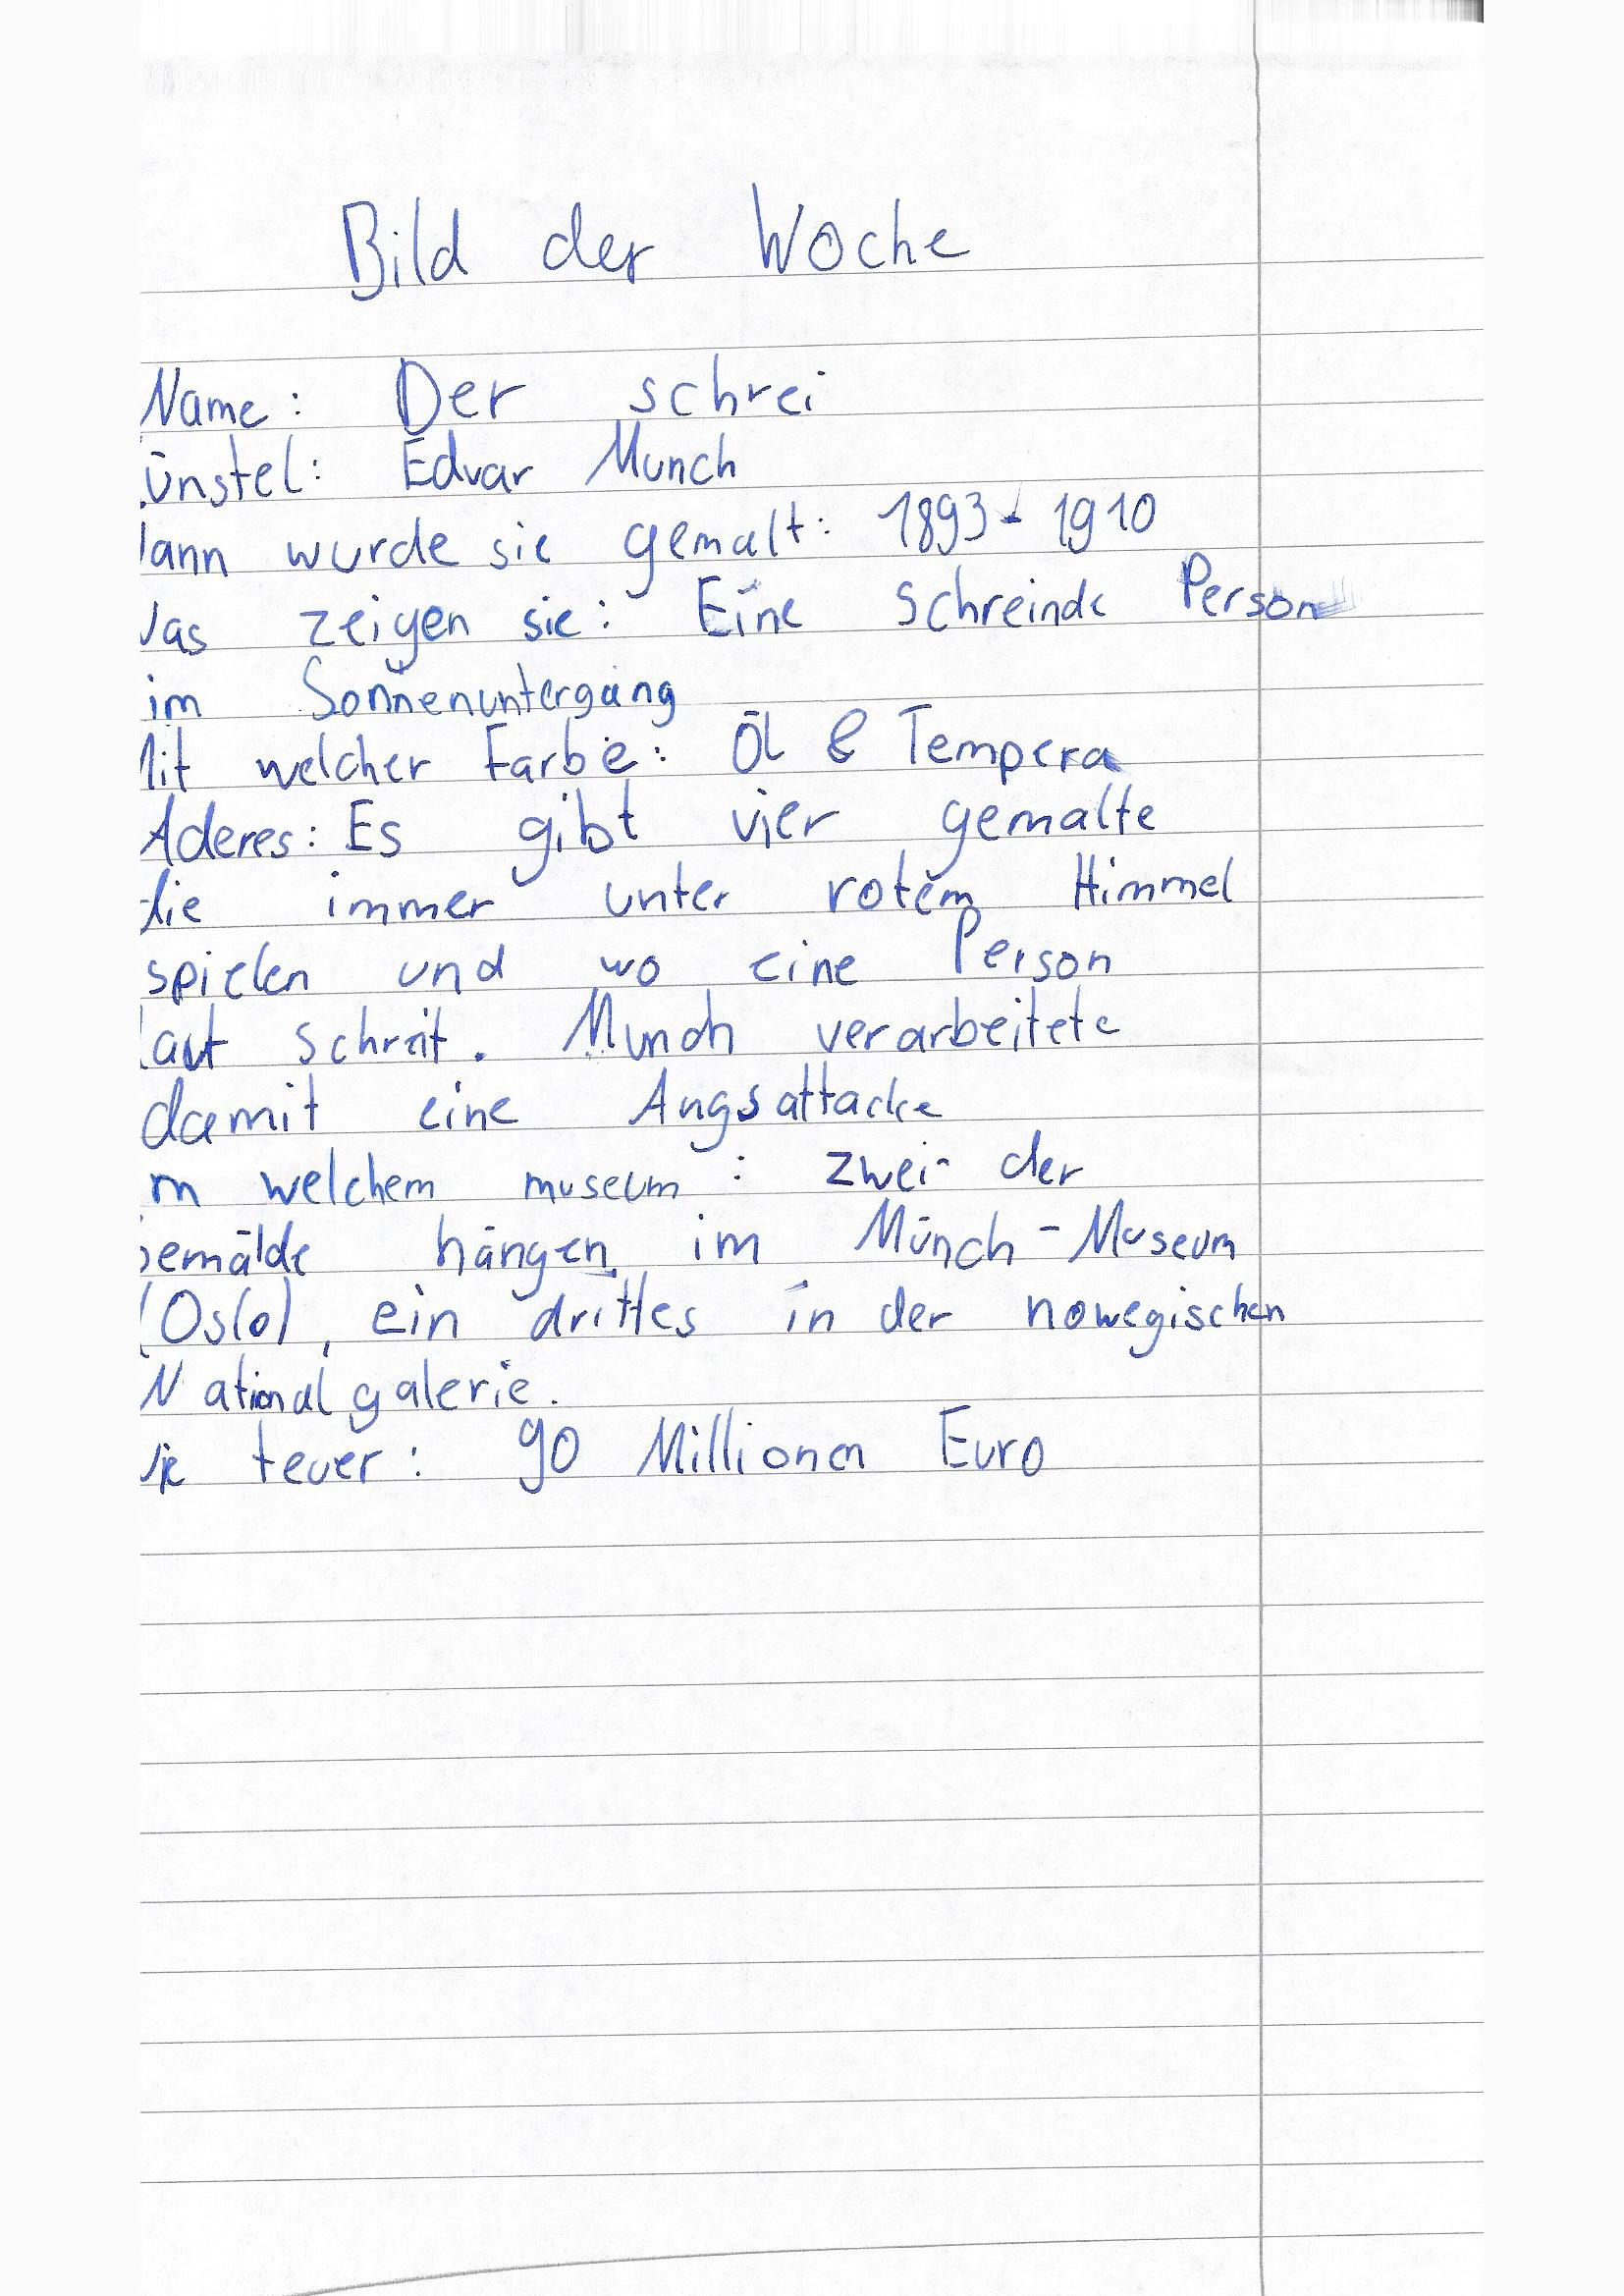 Bild der Woche
Name: Der schrei
ünstel: Edvar Munch
ann wurde sie gemalt: 1893 - 1910
as zeigen sie: Eine Schreinde Person
im Sonnenuntergang
it welcher Farbe: Öl & Tempera
Aderes: Es gibt vier gemalte
die immer unter rotem Himmel
spielen und wo eine Person
laut schreit. Munch verarbeitete
damit eine Angsattacke
In welchem museum: zwei der
emälde hängen im Münch-Museum
(Oslo), ein drittes in der nowegischen
Nationalgalerie.
ie teuer: 90 Millionen Euro